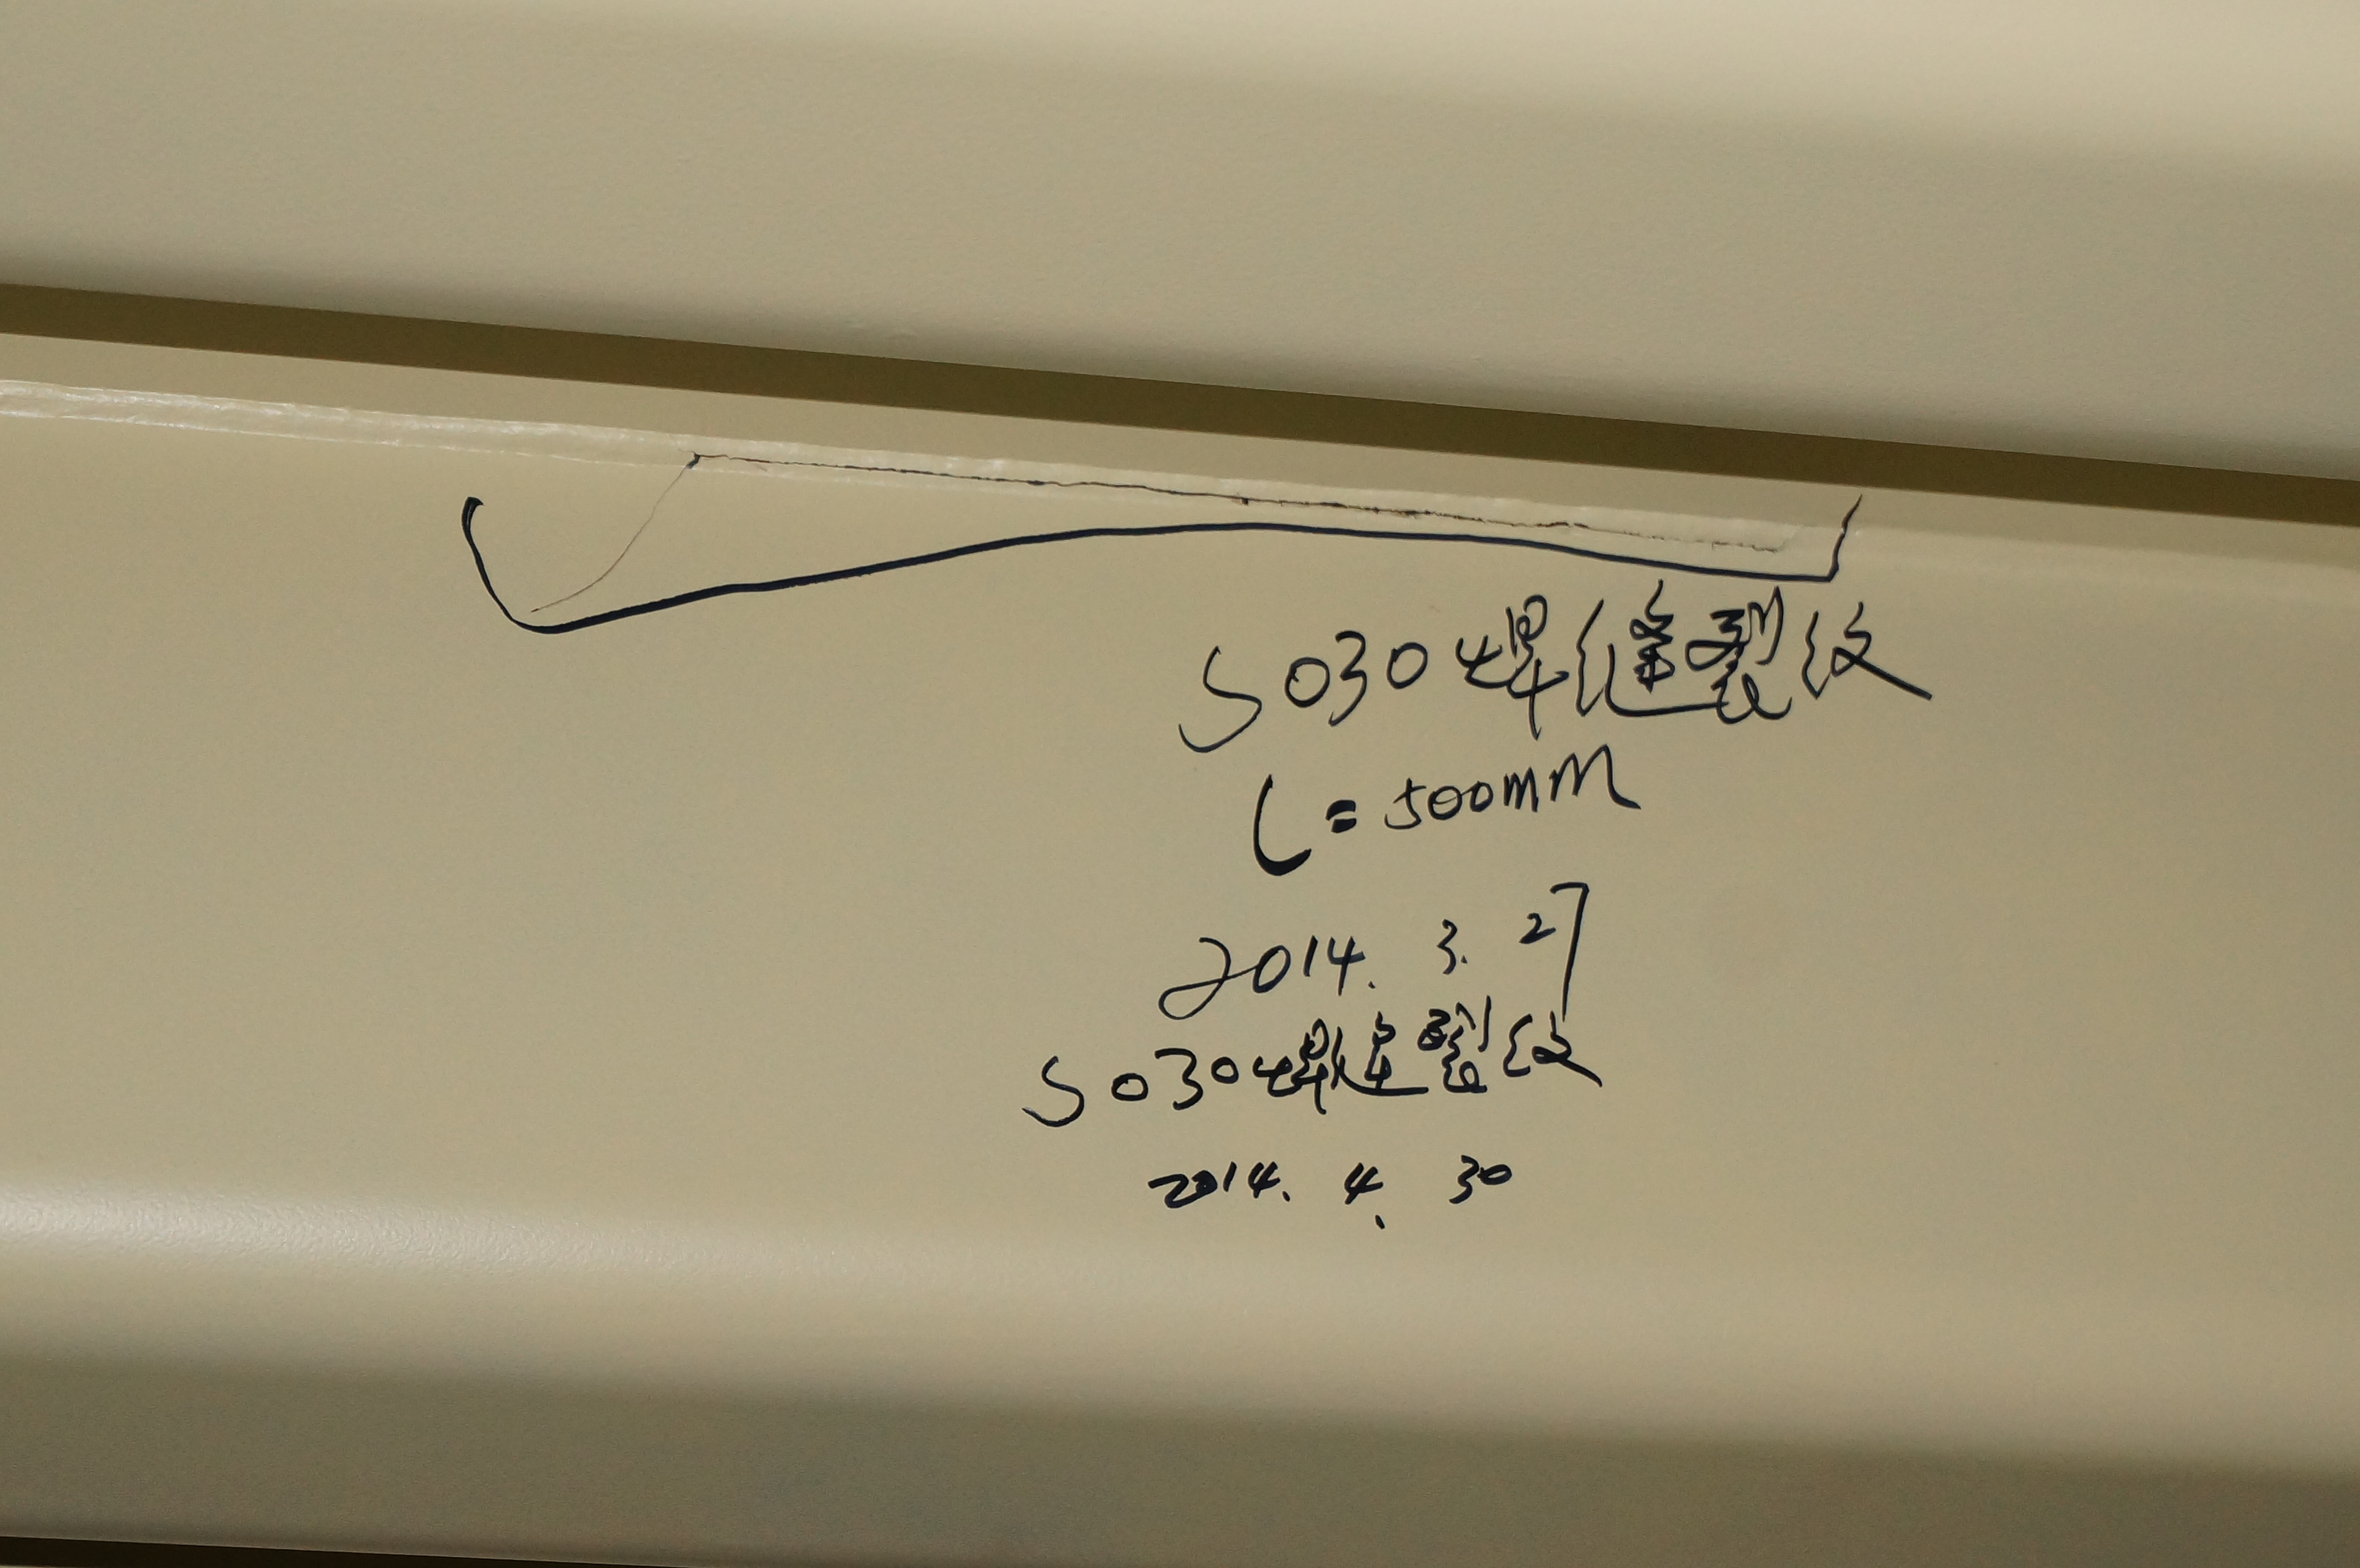 S030焊缝裂纹
L=500mm
2014.3.27
S030焊缝裂纹
2014.4.30